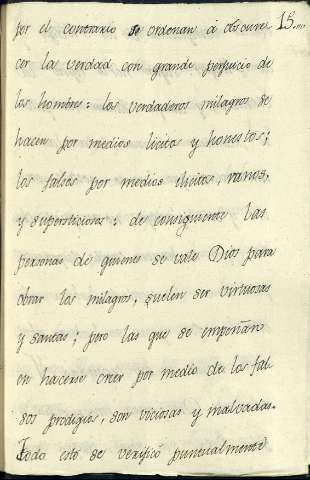 15....
por el contrario se ordenan à obscure
cer la verdad con grande perjuicio de
los hombres: los verdaderos milagros se
hacen por medios licitos y honestos;
los falsos por medios ilicitos, vanos,
y supersticiosos: de consiguiente las
personas de quienes se vale Dios para
obrar los milagros, suelen ser virtuosas
y santas; pero las que se empeñan
en hacerse creer por medio de los fal
sos prodigios, son viciosas y malvadas.
Todo esto se verificó puntualmente